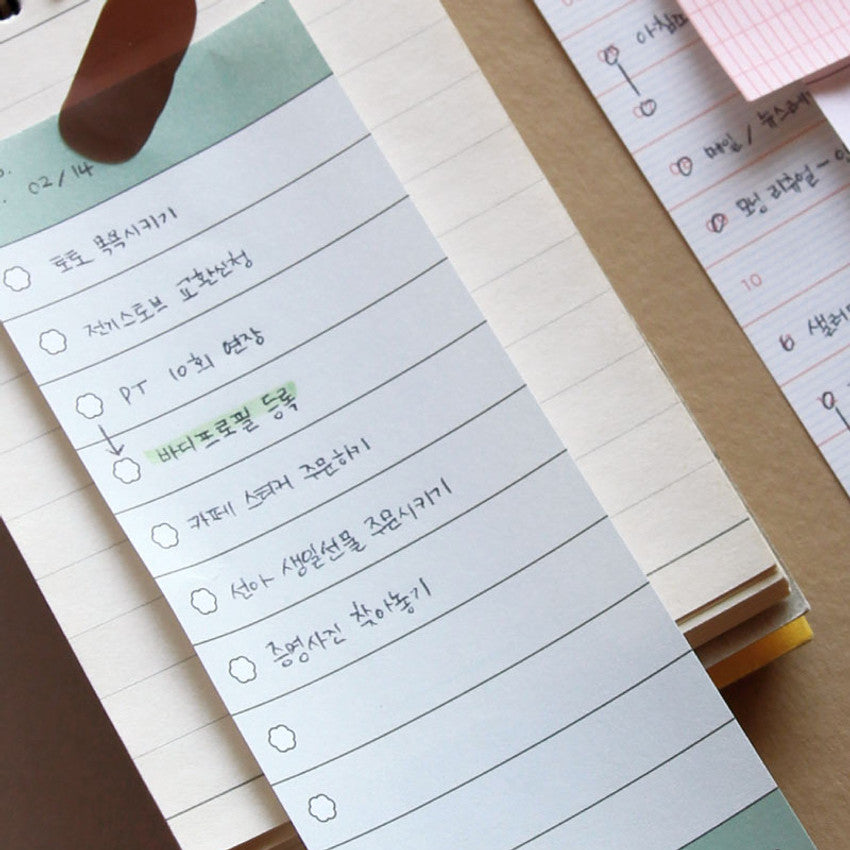 02/14
토토 목욕시키기
전기스토브 교환신청
PT 10회 연장
바디프로필 등록
카페 스티커 주문하기
선아 생일선물 주문시키기
증명사진 찾아놓기
메일 /
모닝 리추얼 -
10